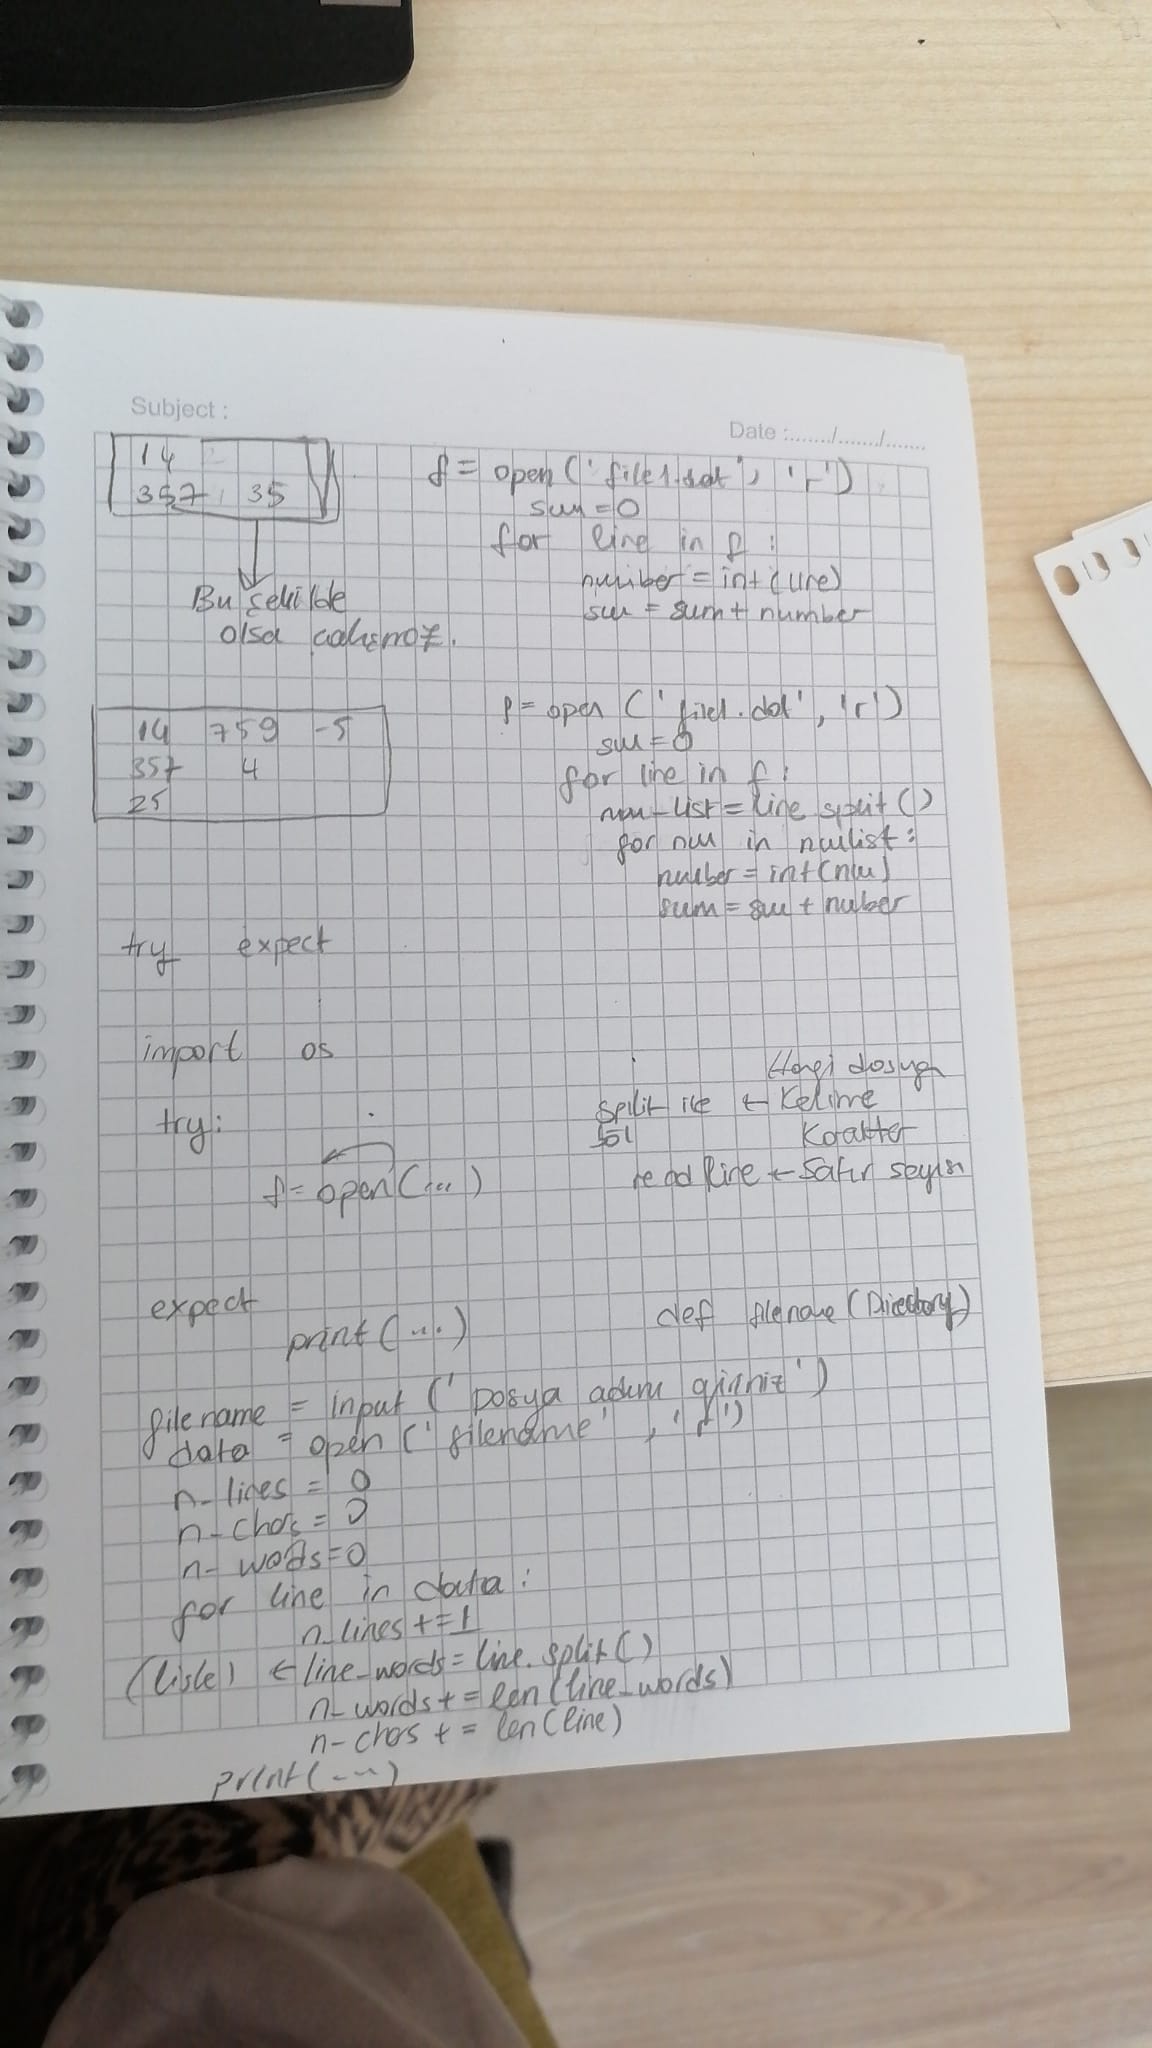 Subject :
Date :......./......./.......
14
357 35
Bu şekilde
olsa çalışmaz.
f = open ('file1.dat', 'r')
sum = 0
for line in f :
number = int (line)
sum = sum + number
14 759 -5
357 4
25
f = open ('file1.dat', 'r')
sum = 0
for line in f :
num-list = line.split ()
for num in numlist :
number = int(num)
sum = sum + number
try expect
import os
try :
f = open (...)
Hangi dosya
split ile ← Kelime
Karakter
readline ← Satır sayısı
expect
print (...)
def filename (Directory)
filename = input ('Dosya adını giriniz')
data = open ('filename', 'r')
n-lines = 0
n-chars = 0
n-words = 0
for line in data :
n-lines += 1
(liste) ← line-words = line.split ()
n-words += len (line-words)
n-chars += len (line)
print (...)